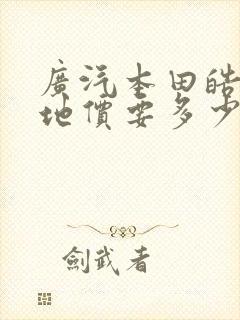 廣汽本田皓
地價要多少
劍武者